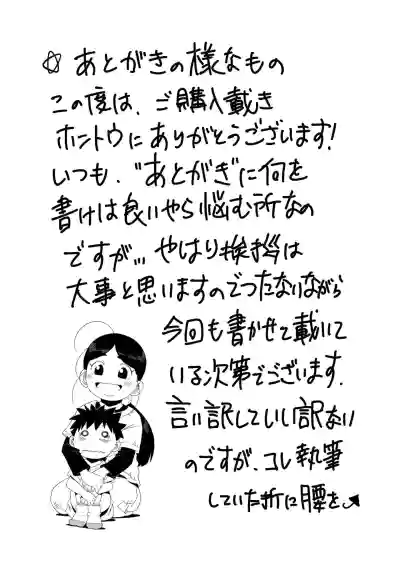 ☆ あとがきの様なもの
この度は、ご購入戴き
ホントウにありがとうございます!
いつも、"あとがき"に何を
書けば良いやら悩む所なの
ですが... やはり挨拶は
大事と思いますのでつたないながら
今回も書かせて戴いて
いる次第でございます。
言い訳していい訳ない
のですが、コレ執筆
していた折に腰を→